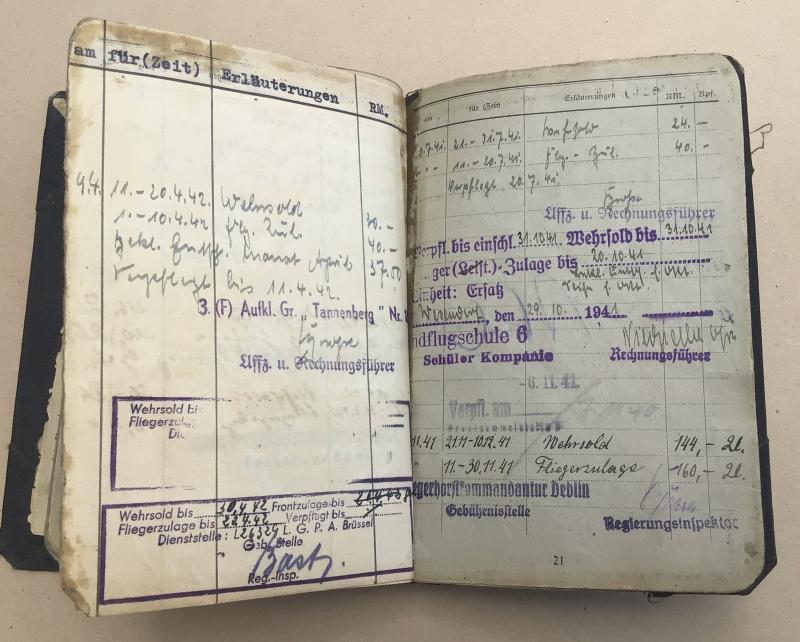 am für (Zeit) Erläuterungen RM.
9.4. 11.-20.4.42. Wehrsold 30.-
1.-10.4.42 Flg. Zul. 40.-
Monat April 37.50
Verpflegt bis 11.4.42.
3. (F) Aufkl. Gr. „Tannenberg" Nr.
Uffz. u. Rechnungsführer
Wehrsold bis
Fliegerzulag
Die
Wehrsold bis 30.4.42 Frontzulage bis
Fliegerzulage bis Verpflegt bis
Dienststelle: L 26329 L. G. P. A. Brüssel
Geb. Stelle
Reg.-Insp.
für Zeit Erläuterungen RM. Rpf.
.7.41. 21.-31.7.41. Wehrsold 24.-
11.-20.7.41. Flg.-Zul. 40.-
Verpflegt 20.7.41
Uffz. u. Rechnungsführer
Verpfl. bis einschl. 31.10.41 Wehrsold bis 31.10.41
ger (Leist.)-Zulage bis 20.10.41
Einheit: Ersatz
Wesendorf, den 29.10. 1941
ndflugschule 6
Schüler Kompanie Rechnungsführer
6.11.41.
Verpfl. am
11.41 21.11-10.12.41 Wehrsold 144,-
" 11.-30.11.41 Fliegerzulage 160,-
gerhorstkommandantur Deblin
Gebührnisstelle
Regierungsinspektor
21